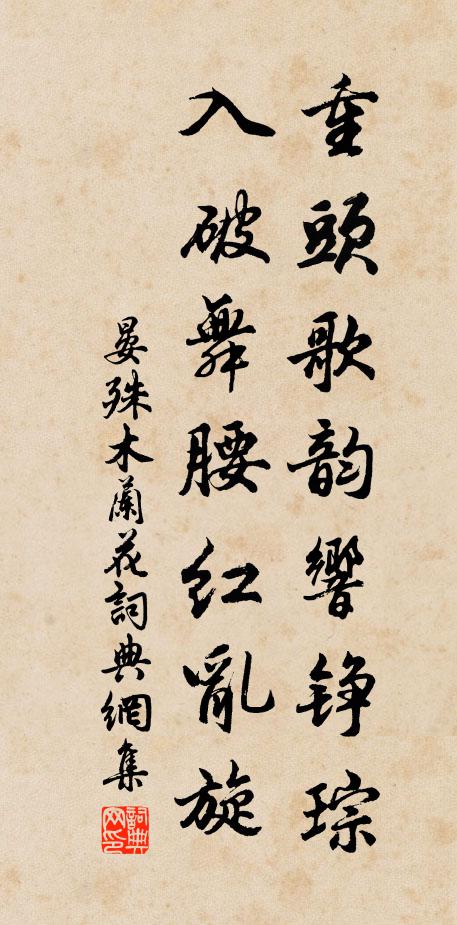 重頭歌韵響錚琮
入破舞腰紅亂旋
晏殊木蘭花詞典網集
詞典网印